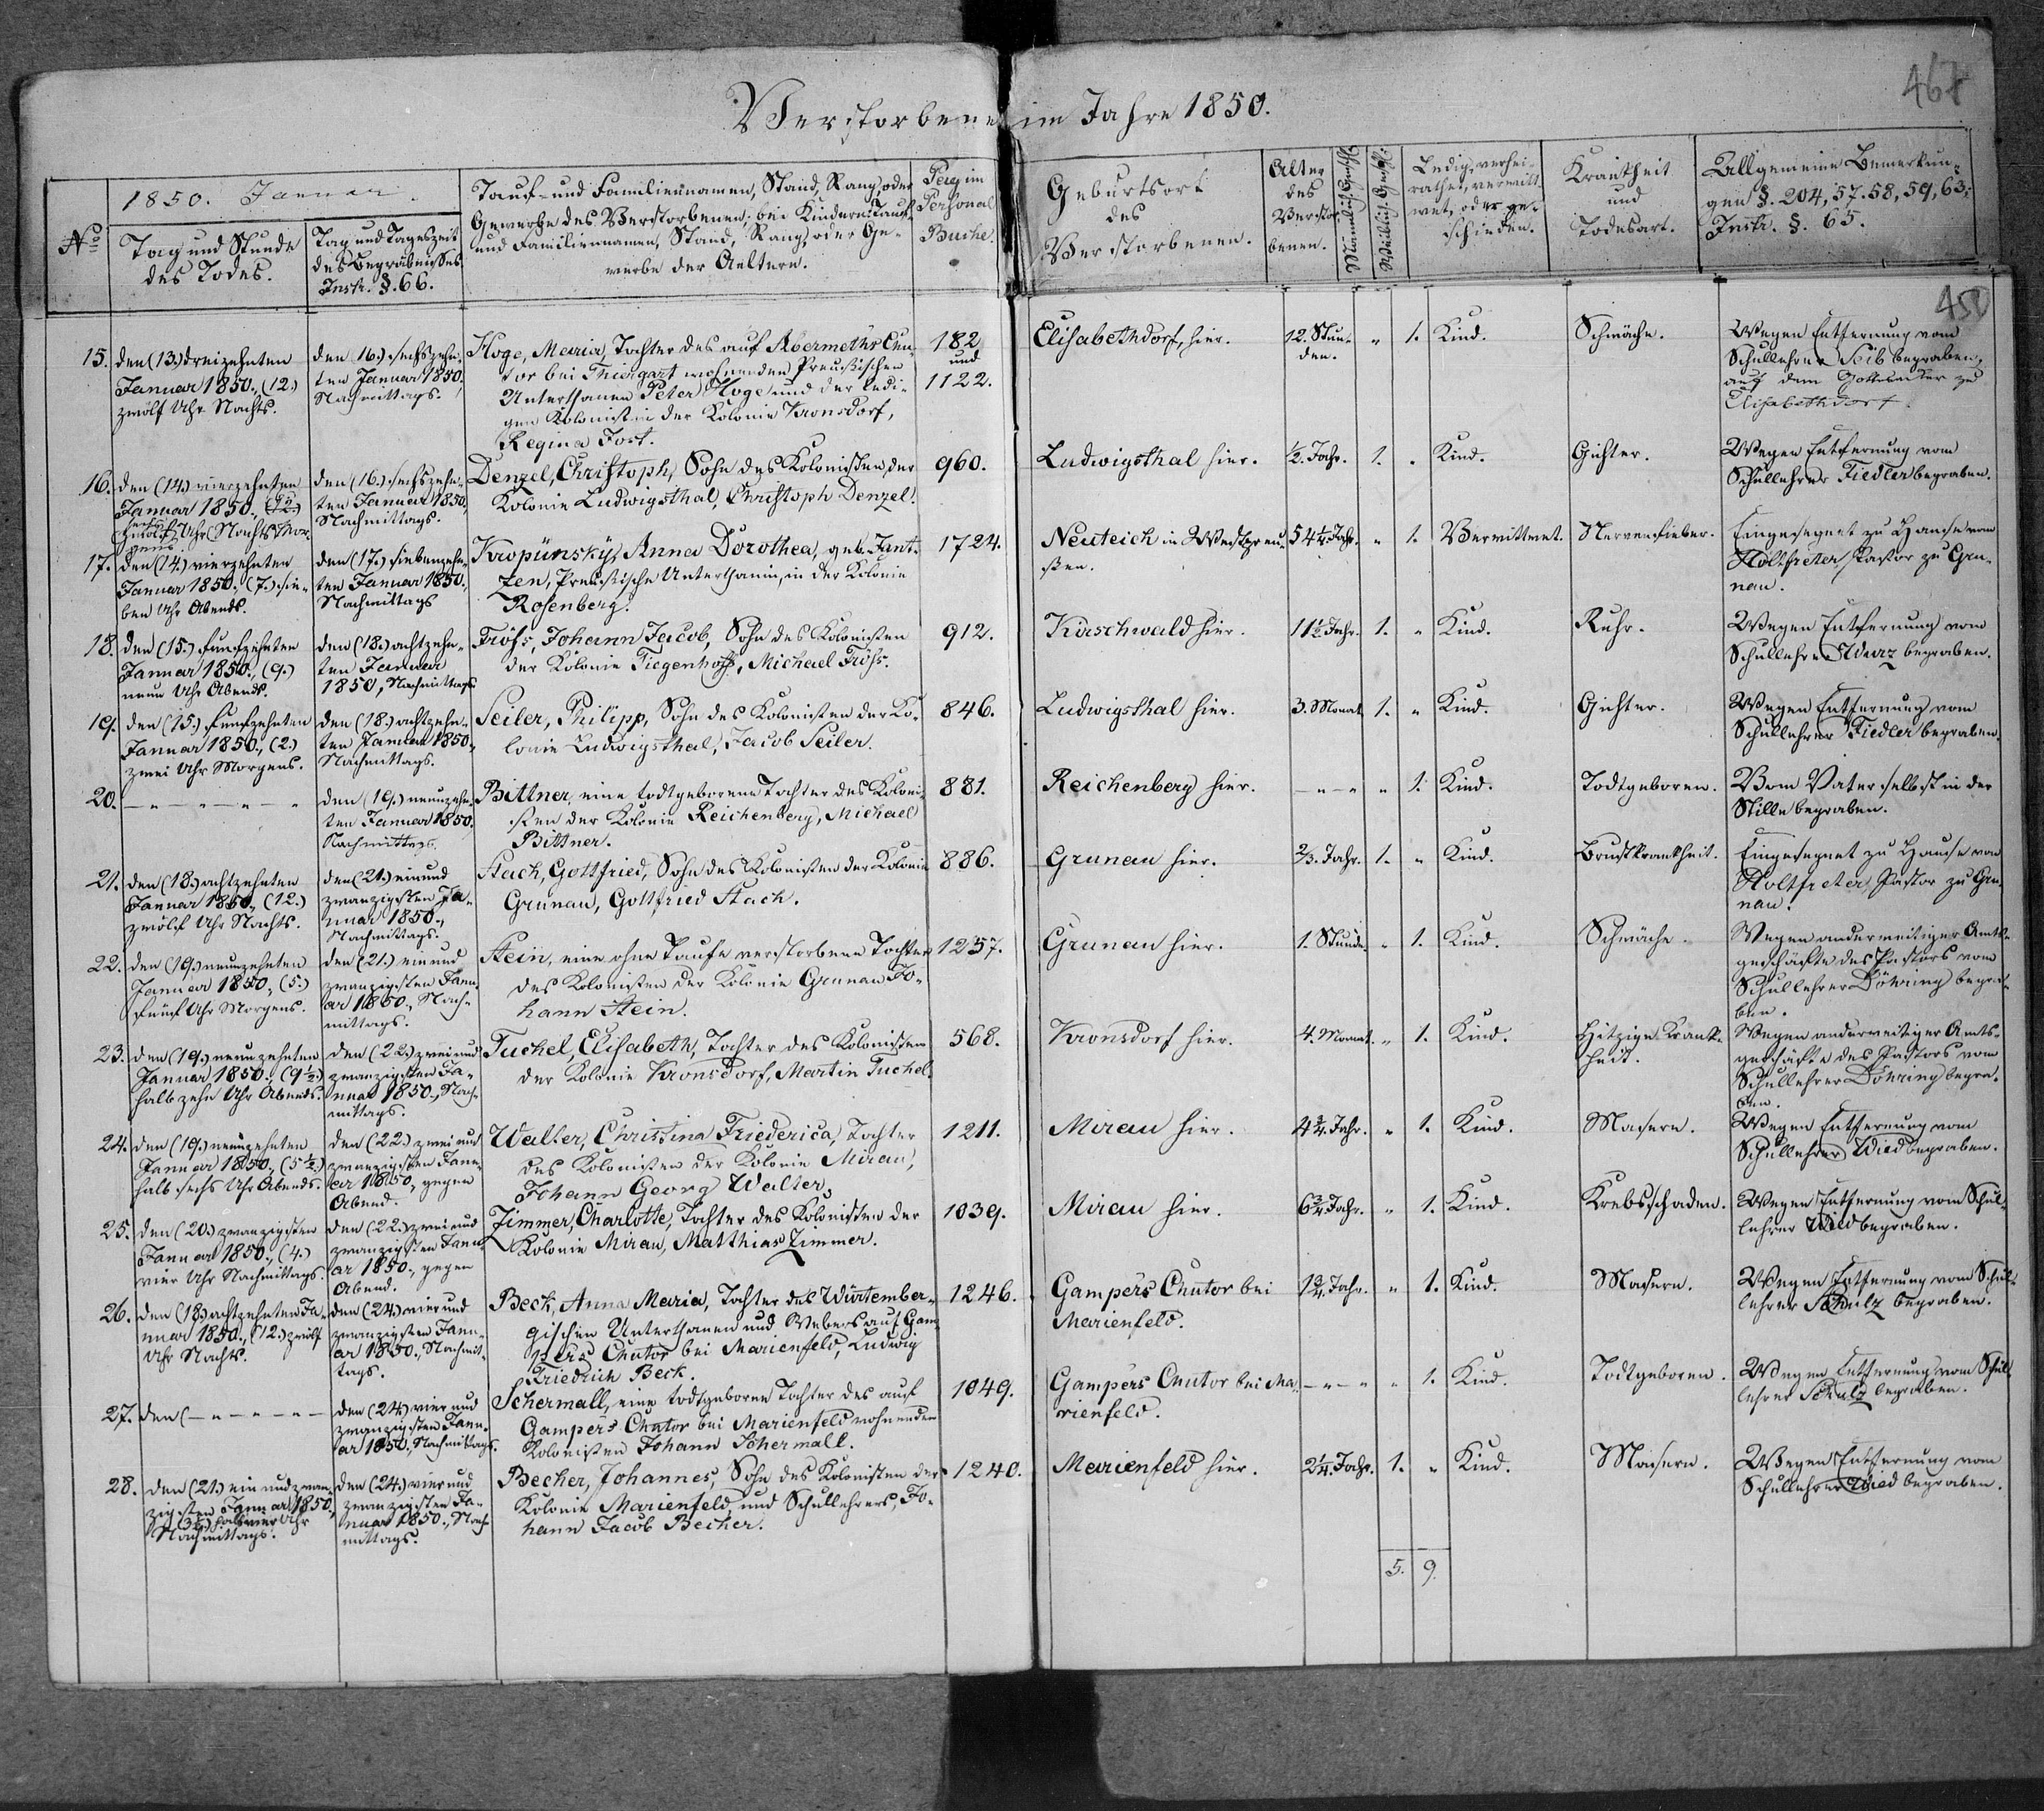 Verstorbene im Jahre 1850.
467
450
No
1850. Januar.
Tag und Stunde
des Todes.
Tag und Tageszeit
des Begräbnisses
Instr. §. 66.
Tauf- und Familiennamen, Stand, Rang, oder
Gewerbe des Verstorbenen; bei Kindern: Tauf-
und Familiennamen, Stand, Rang, oder Ge-
werbe der Aeltern.
Pag. im
Personal
Buche.
Geburtsort
des
Verstorbenen.
Alter
des
Verstor-
benen.
Männlich. Geschl.
Weiblich. Geschl.
Ledig, verhei-
rathet, verwitt-
wet, oder ge-
schieden.
Krankheit
und
Todesart.
Allgemeine Bemerkun-
gen §. 204, 57. 58, 59, 63;
Instr. §. 65.
15.
den (13.) dreizehnten
Januar 1850., (12.)
zwölf Uhr Nachts.
den (16.) sechszehn-
ten Januar 1850.,
Nachmittags.
Hoge, Maria, Tochter des auf Abermeths Chu-
tor bei Thiergart wohnenden Preußischen
Unterthanen Peter Hoge und der ledi-
gen Kolonistin der Kolonie Kronsdorf,
Regina Jost.
182
und
1122.
Elisabethdorf, hier.
12. Stun-
den.
" 1.
Kind.
Schwäche.
Wegen Entfernung vom
Schullehrer Seib begraben,
auf dem Gottesacker zu
Elisabethdorf.
16.
den (14.) vierzehnten
Januar 1850., (12.)
zwölf Uhr Nachts Mor-
gens.
den (16.) sechszehn-
ten Januar 1850.,
Nachmittags.
Denzel, Christoph, Sohn des Kolonisten der
Kolonie Ludwigsthal, Christoph Denzel.
960.
Ludwigsthal hier.
½. Jahr.
1. "
Kind.
Gichter.
Wegen Entfernung vom
Schullehrer Fiedler begraben.
17.
den (14.) vierzehnten
Januar 1850., (7.) sie-
ben Uhr Abends.
den (17.) siebenzehn-
ten Januar 1850.,
Nachmittags
Kropünsky, Anna Dorothea, geb. Jant-
zen, Preußische Unterthanin, in der Kolonie
Rosenberg.
1724.
Neuteich in Westpreu-
ßen.
54¼. Jahr.
" 1.
Verwittwet.
Nervenfieber.
Eingesegnet zu Hause vom
Holtfreter, Pastor zu Gru-
nau.
18.
den (15.) funfzehnten
Januar 1850., (9.)
neun Uhr Abends.
den (18.) achtzehn-
ten Januar
1850, Nachmittags
Fröß, Johann Jacob, Sohn des Kolonisten
der Kolonie Tiegenhoff, Michael Fröß.
912.
Kirschwald hier.
11½. Jahr.
1. "
Kind.
Ruhr.
Wegen Entfernung vom
Schullehrer begraben.
19.
den (15.) funfzehnten
Januar 1850., (2.)
zwei Uhr Morgens.
den (18.) achtzehn-
ten Januar 1850.,
Nachmittags.
Seiler, Philipp, Sohn des Kolonisten der Ko-
lonie Ludwigsthal, Jacob Seiler.
846.
Ludwigsthal hier.
3. Monat
1. "
Kind.
Gichter.
Wegen Entfernung vom
Schullehrer Fiedler begraben.
20.
— " — " — " — "
den (19.) neunzehn-
ten Januar 1850.
Nachmittags.
Bittner, eine todtgeborene Tochter des Koloni-
sten der Kolonie Reichenberg, Michael
Bittner.
881.
Reichenberg hier.
— " — "
" 1.
Kind.
Todtgeboren.
Vom Vater selbst in der
Stille begraben.
21.
den (18.) achtzehnten
Januar 1850., (12.)
zwölf Uhr Nachts.
den (21.) ein und
zwanzigsten Ja-
nuar 1850.,
Nachmittags.
Stach, Gottfried, Sohn des Kolonisten der Kolonie
Grunau, Gottfried Stach.
886.
Grunau hier.
⅔. Jahr.
1. "
Kind.
Brustkrankheit.
Eingesegnet zu Hause von
Holtfreter, Pastor zu Gru-
nau.
22.
den (19.) neunzehnten
Januar 1850., (5.)
fünf Uhr Morgens.
den (21.) ein und
zwanzigsten Janu-
ar 1850., Nach-
mittags.
Stein, eine ohne Taufe verstorbene Tochter
des Kolonisten der Kolonie Grunau Jo-
hann Stein.
1257.
Grunau hier.
1. Stunde
" 1.
Kind.
Schwäche.
Wegen anderweitiger Amts-
geschäfte des Pastors vom
Schullehrer Döhring begra-
ben.
23.
den (19.) neunzehnten
Januar 1850., (9½.)
halb zehn Uhr Abends.
den (22.) zwei und
zwanzigsten Ja-
nuar 1850., Nach-
mittags.
Tuchel, Elisabeth, Tochter des Kolonisten
der Kolonie Kronsdorf, Martin Tuchel.
568.
Kronsdorf hier.
4. Monat.
" 1.
Kind.
Hitzige Krank-
heit.
Wegen anderweitiger Amts-
geschäfte des Pastors vom
Schullehrer Döhring begra-
ben.
24.
den (19.) neunzehnten
Januar 1850., (5½.)
halb sechs Uhr Abends.
den (22.) zwei und
zwanzigsten Janu-
ar 1850, gegen
Abend.
Walter, Christina Friederica, Tochter
des Kolonisten der Kolonie Mirau,
Johann Georg Walter.
1211.
Mirau hier.
4¾. Jahr.
" 1.
Kind.
Masern.
Wegen Entfernung vom
Schullehrer Wied begraben.
25.
den (20.) zwanzigsten
Januar 1850., (4.)
vier Uhr Nachmittags.
den (22.) zwei und
zwanzigsten Janu-
ar 1850., gegen
Abend.
Zimmer, Charlotte, Tochter des Kolonisten der
Kolonie Mirau, Matthias Zimmer.
1039.
Mirau hier.
6¾. Jahr.
" 1.
Kind.
Krebsschaden.
Wegen Entfernung vom Schul-
lehrer Wied begraben.
26.
den (18.) achtzehnten Ja-
nuar 1850., (12.) zwölf
Uhr Nachts.
den (24.) vier und
zwanzigsten Janu-
ar 1850., Nachmit-
tags.
Beck, Anna Maria, Tochter des Würtember-
gischen Unterthanen und Webers auf Gam-
pers Chutor bei Marienfeld, Ludwig
Friedrich Beck.
1246.
Gampers Chutor bei
Marienfeld.
1¾. Jahr.
" 1.
Kind.
Masern.
Wegen Entfernung vom Schul-
lehrer Schulz begraben.
27.
den (— " — " — " —
den (24.) vier und
zwanzigsten Janu-
ar 1850., Nachmittags.
Schermall, eine todtgeborene Tochter des auf
Gampers Chutor bei Marienfeld wohnenden
Kolonisten Johann Schermall.
1049.
Gampers Chutor bei Ma-
rienfeld.
— " — "
" 1.
Kind.
Todtgeboren.
Wegen Entfernung vom Schul-
lehrer Schulz begraben.
28.
den (21.) ein und zwan-
zigsten Januar 1850,
(3½.) halb vier Uhr
Nachmittags.
den (24.) vier und
zwanzigsten Ja-
nuar 1850., Nach-
mittags.
Becher, Johannes, Sohn des Kolonisten der
Kolonie Marienfeld, und Schullehrers, Jo-
hann Jacob Becher.
1240.
Marienfeld hier.
2¼. Jahr.
1. "
Kind.
Masern.
Wegen Entfernung vom
Schullehrer Wied begraben.
5. 9.